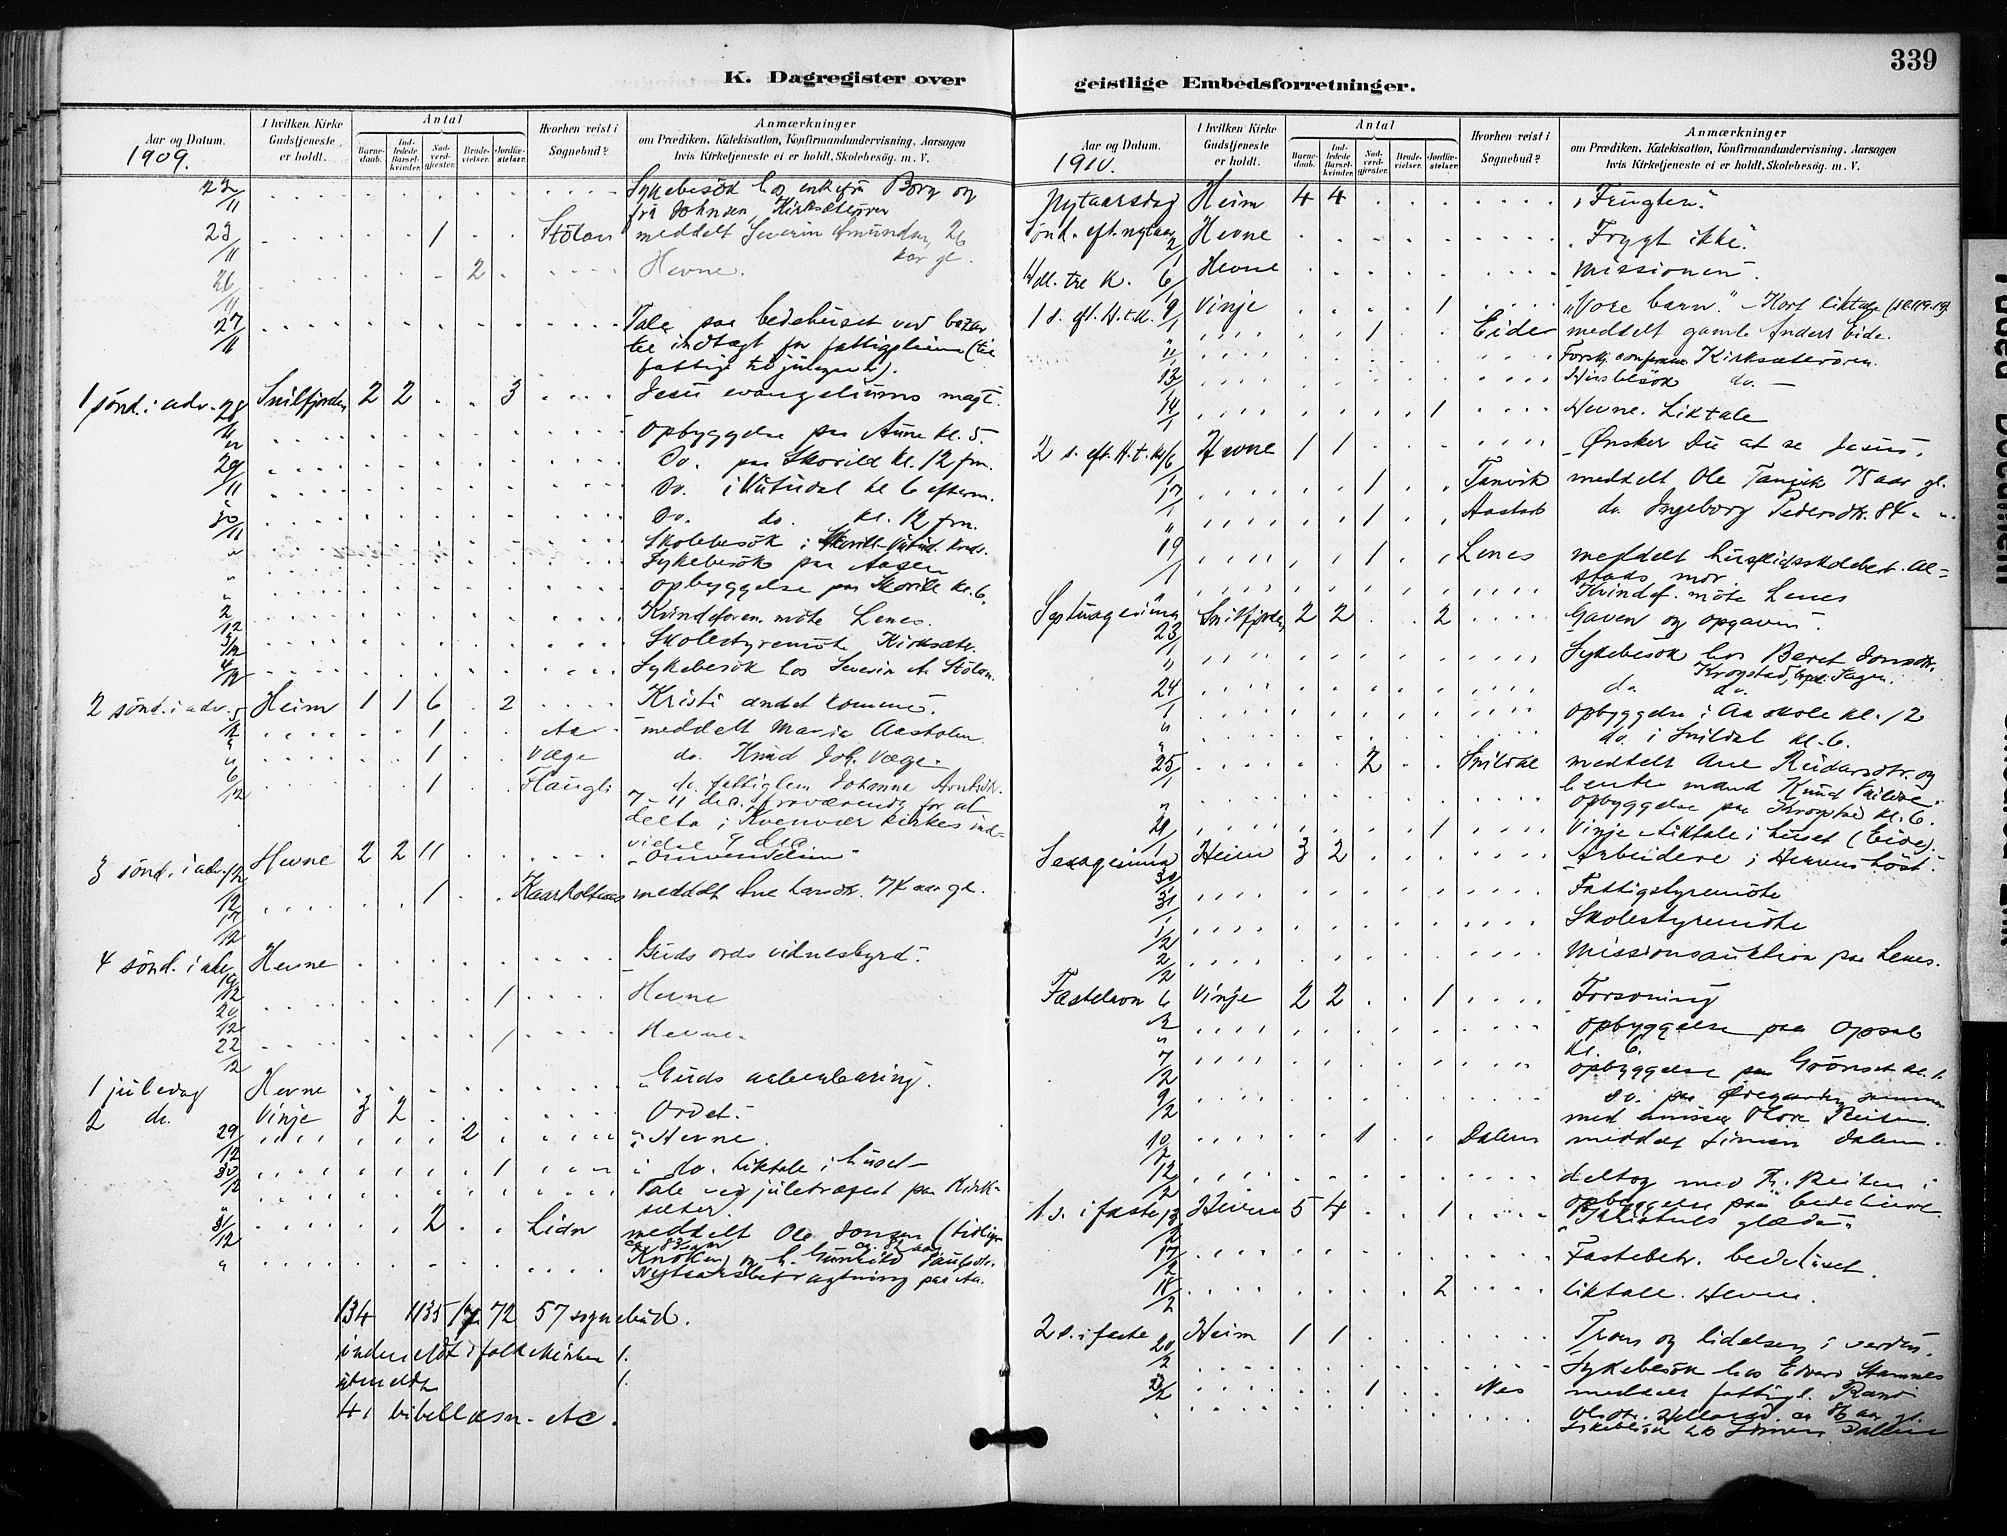 339
K. Dagregister over
Aar og Datum.
1909.
I hvilken Kirke Gudstjeneste er holdt.
Antal
Barnedaab.
Indledede Barselkvinder.
Nadverdgjester.
Brudevielser.
Jordfæstelser.
Hvorhen reist i Sognebud?
Anmærkninger
om Prædiken, Katekisation, Konfirmandundervisning, Aarsagen
hvis Kirketjeneste ei er holdt, Skolebesøg. m. V.
23/11 Sykebesök hos enkefru Borg og
fru Johnsen, Kirksæterören
23/11 1 Stölan meddelt Severin Amundsen 26
aar gl.
26/11 2 Hevne.
27/11 Tale paa bedehuset ved bazar
til indtægt for fattigpleien (til
fattige til julegaver).
1 sönd. i adv. 28/11 Snilfjorden 2 2 3 Jesu evangeliums magt.
Opbyggelse paa Aune kl. 5.
29/11 Do. paa Skorild kl. 12 fm.
Do. kl 6 efterm.
30/11 Do. do. kl. 12 fm.
Skolebesök i
Sykebesök paa Aasen
opbyggelse paa kl. 6.
2/12 Kvindeforen. möte Lenes.
3/12 Skolestyremöte Kirksæter.
4/12 Sykebesök hos Severin A. Stölan.
2 sönd. i adv. 5/12 Heim 1 1 6 2 Kristi andet komme.
1 Aa meddelt Maria Aastolen
1 Væge do. Knud Joh. Væge.
6/12 1 Haugli do. fattiglem Johanna
7-11 dec. fraværende for at
delta i Kvenvær kirkes ind-
vielse 9 dec.
3 sönd. i adv. 12/12 Hevne 2 2 11 "Omvendelsen"
17/12 1 meddelt 74 aar gl.
4 sönd. i adv. 19/12 Hevne Guds ords vidnesbyrd.
20/12 1 Hevne
22/12 1 Hevne.
1 juledag Hevne "Guds aabenbaring.
2 do. Vinje 3 2 Ordet.
29/12 2 Hevne.
30/12 1 do. Liktale i huset
Tale ved juletræfest paa Kirk-
sæter.
31/12 2 Lian meddelt Ole Jonsen (tidliger
Nytaarsbetragtning paa Aa.
134 1135 17 72 57 sognebud.
indmeldt i folkekirken 1.
utmeldt 1.
41 bibellæsn. etc.
geistlige Embedsforretninger.
Aar og Datum.
1910.
I hvilken Kirke Gudstjeneste er holdt.
Antal
Barnedaab.
Indledede Barselkvinder.
Nadverdgjester.
Brudevielser.
Jordfæstelser.
Hvorhen reist i Sognebud?
Anmærkninger
om Prædiken, Katekisation, Konfirmandundervisning, Aarsagen
hvis Kirketjeneste ei er holdt, Skolebesøg. m. V.
Nytaarsdag Heim 4 4 "Frugten."
Sönd. eft. nytaar 2/1 Hevne "Frygt ikke."
Hdl. tre K. 6/1 Hevne Missionen.
1 s. eft. H.t.K. 9/1 Vinje 1 "Vore barn." - Kort liktale
" 1 Eide meddelt gamle Anders Eide.
11/1 Kirksæterören.
13/1 Husbesök do. -
14/1 1 Hevne. Liktale
2 s. eft. H.t.K. 16/1 Hevne 1 1 Önsker du at se Jesus.
17/1 1 Tanvik meddelt Ole Tanvik 75 aar gl.
" 1 Aastad do. Ingeborg Pedersdtr. 84 " "
19/1 1 Lenes meddelt husflidsskolebest. Al-
stads mor.
" Kvindef. möte Lenes
Septuagesima 23/1 Snilfjorden 2 2 2 Gaven og opgaven.
" Sykebesök hos Beret Jonsdtr.
Krogstad,
24/1 do. do.
" opbyggelse i Aa skole kl. 12
" do. i Snildal kl. 6.
25/1 2 Snildal meddelt Ane Reidarsdtr. og
hendes mand Knud Snildal.
" opbyggelse paa Krogstad kl. 6.
1 Vinje. Liktale i huset (Eide).
Sexagesima 30/1 Heim 3 2 Arbeidere i Herrens höst.
31/1 Fattigstyremöte
1/2 Skolestyremöte
2/2 Missionsauktion paa Lenes.
Fastelavn 6/2 Vinje 2 2 1 Forsoning
" opbyggelse paa Opsal
kl. 6.
7/2 opbyggelse paa Grönset kl.
9/2 do. paa sammen
med emissær Reiten.
10/2 1 Dalen meddelt Simon Dalen.
12/2 deltog med Reiten i
opbyggelse paa bedehuset.
1 s. i faste 13/2 Hevne 5 4 1 "Kristnes glæde."
17/2 Fastebetr. bedehuset.
18/2 2 liktale. Hevne.
2 s. i faste 20/2 Heim 1 1 Troen og lidelsen i verden.
Sykebesök hos Edvard Stamnes
1 Nes meddelt fattigl. Randi
Olsdtr. ca 86 aar gl.
Sykebesök hos Simon Dalen